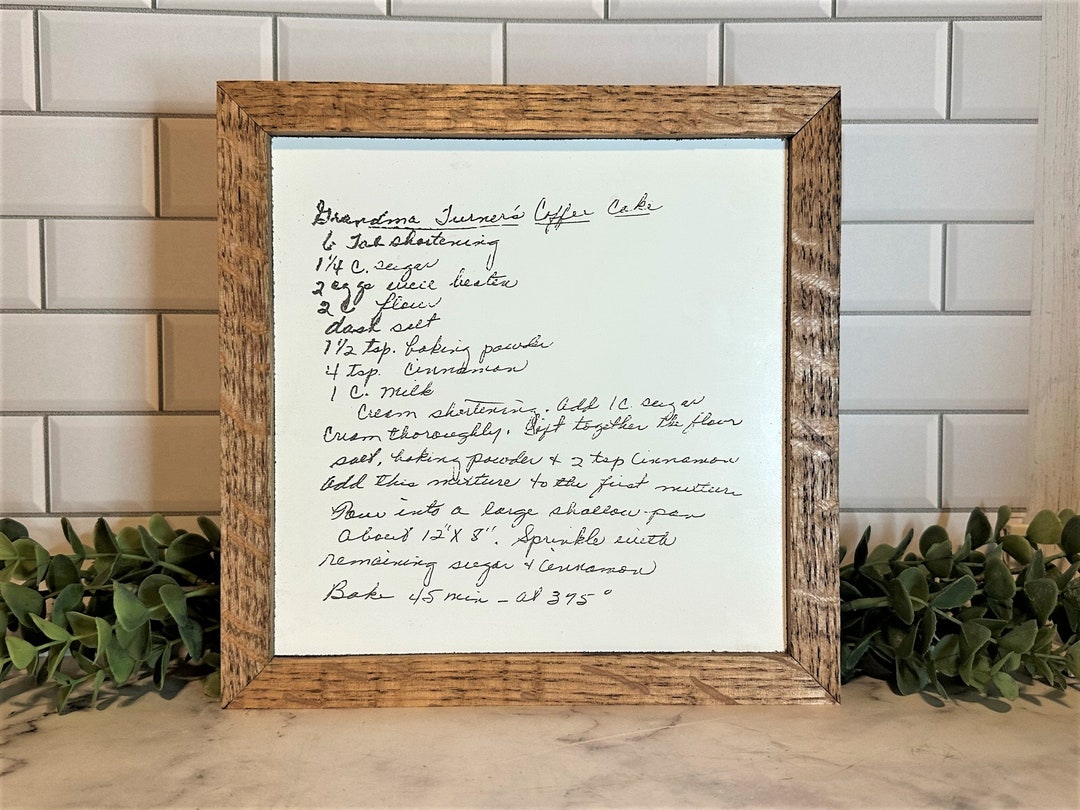 Grandma Turner's Coffee Cake
6 Tab shortening
1 1/4 C. sugar
2 eggs well beaten
2 C flour
dash salt
1 1/2 tsp. baking powder
4 tsp. Cinnamon
1 C. Milk
Cream shortening. Add 1 C. sugar
Cream thoroughly. Sift together the flour
salt, baking powder + 2 tsp Cinnamon
Add this mixture to the first mixture
Pour into a large shallow pan
about 12" X 8". Sprinkle with
remaining sugar + Cinnamon
Bake 45 min - at 375°